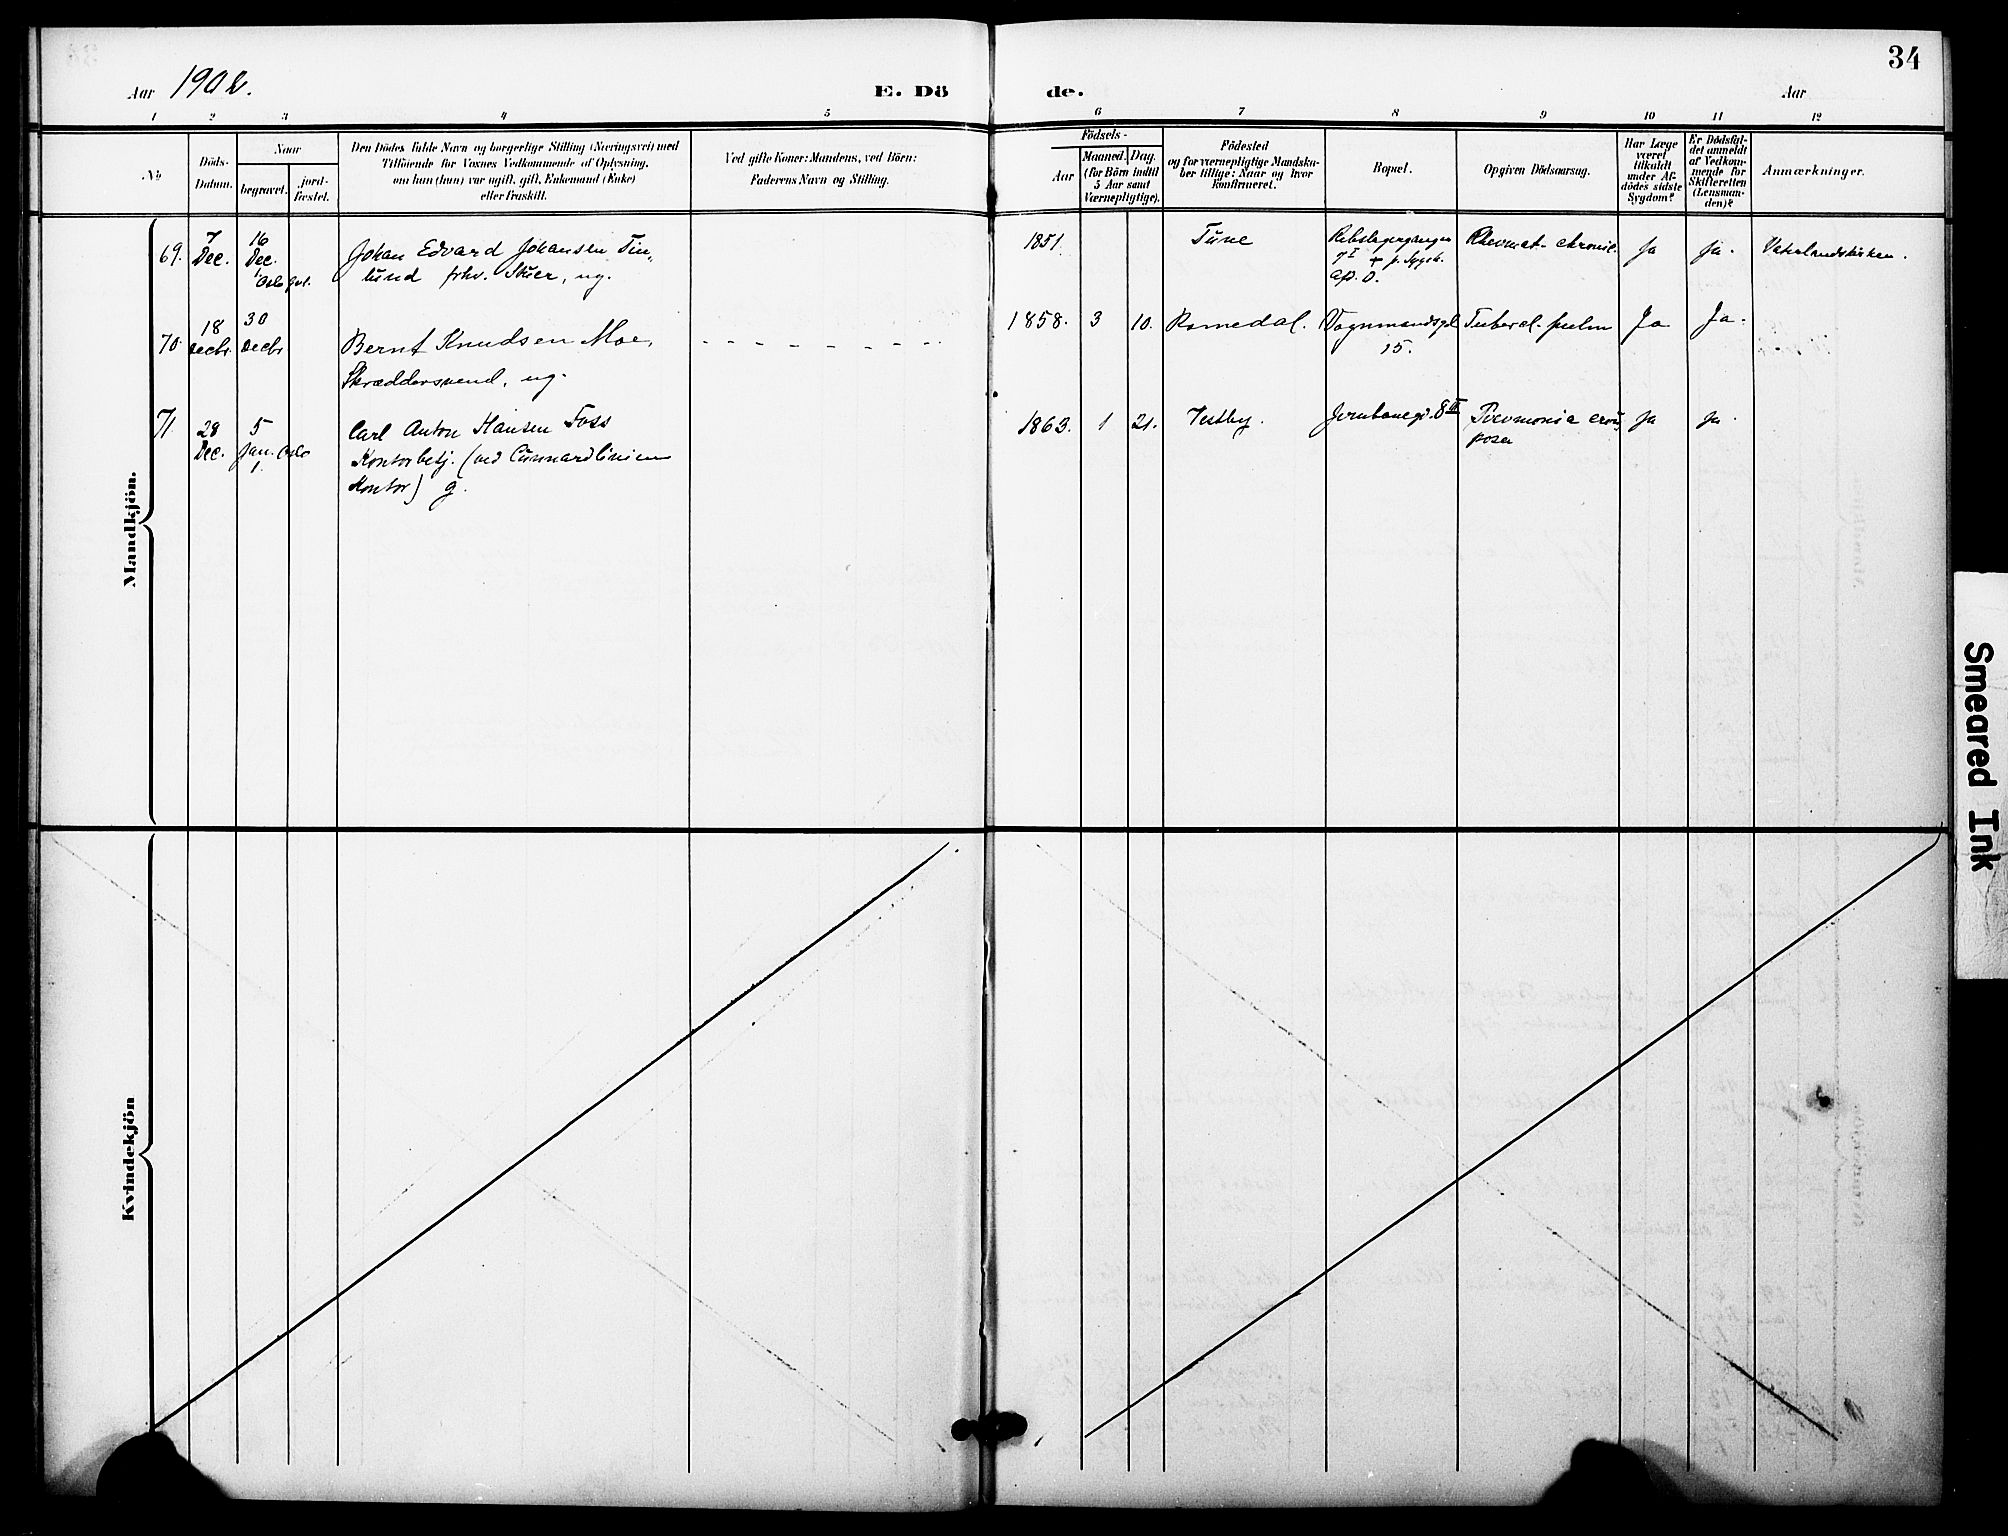 34
Aar 190
E. Dö de.
Aar
1 2 3 4 5 6 7 8 9 10 11 12
No
Döds-
Datum.
Naar
begravet.
jord-
fæstet.
Den Dödes fulde Navn og borgerlige Stilling (Næringsvei) med
Tilföiende for Voxnes Vedkommende af Oplysning,
om han (hun) var ugift, gift, Enkemand (Enke)
eller fraskilt.
Ved gifte Koner: Mandens, ved Börn:
Faderens Navn og Stilling.
Födsels-
Aar
Maaned. Dag.
(for Börn indtil
5 Aar samt
Værnepligtige).
Födested
og for værnepligtige Mandska-
ber tillige: Naar og hvor
konfirmeret.
Bopæl.
Opgiven Dödsaarsag.
Har Læge
været
tilkaldt
under Af-
dödes sidste
Sygdom?
Er Dødsfal-
det anmeldt
af Vedkom-
mende for
Skifteretten
(Lensman-
den)?
Anmærkninger.
Mandkjön.
69. 7 Dec. 16 Dec. Oslo
Johan Edvard Johansen Tin-
lund fhv. Skuer, ug.
1851. Tune
Rebslagergangen
7 I + p. Sygeh.
Rheumat. chronic. Ja Ja. Vaterlandskirken.
70. 18 Decbr. 30 Decbr
Bernt Knudsen Moe,
Skræddersvend, ug.
1858. 3 10. Romedal. Vognmandsgd
15.
Tubercl. pulm Ja Ja.
71. 28 Dec. 5 Jan. Oslo
Carl Anton Hansen Foss
Kontorbetj. (ved Cunnardlinien
Kontor) g.
1863. 1 21. Vestby. Jernbanegd. 8 III Pneumonia crou-
posa
Ja Ja
Kvindekjön
Smeared Ink